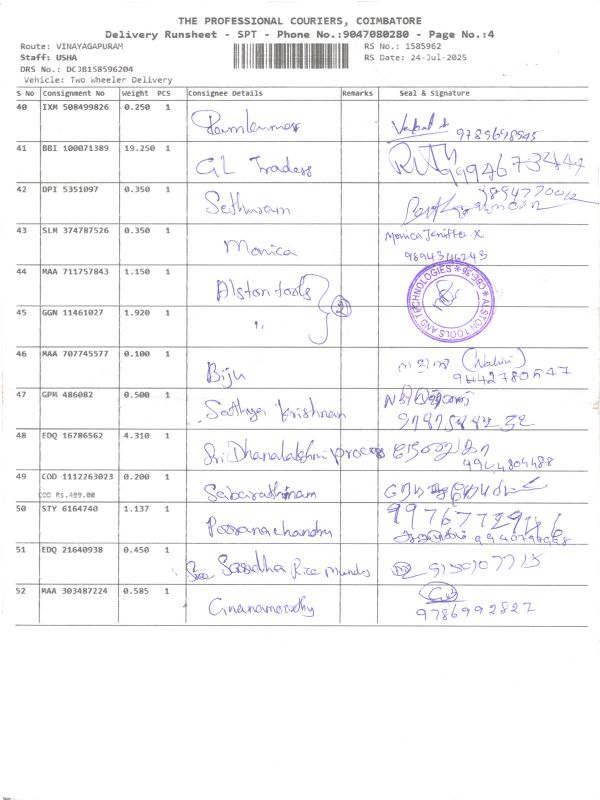 THE PROFESSIONAL COURIERS, COIMBATORE
Delivery Runsheet - SPT - Phone No.:9047080280 - Page No.:4
Route: VINAYAGAPURAM RS No.: 1585962
Staff: USHA RS Date: 24-Jul-2025
DRS No.: DCJB158596204
Vehicle: Two Wheeler Delivery
S No Consignment No Weight PCS Consignee Details Remarks Seal & Signature
40 IXM 508499826 0.250 1
9789698945
41 BBI 100071389 19.250 1 GL Traders
9994673447
42 DPI 5351097 0.350 1 Sethuram
43 SLM 374787526 0.350 1 Monica Monica Jeniffer. X
9894344243
44 MAA 711757843 1.150 1 Alston tools 2
ALSTON TOOLS AND TECHNOLOGIES * CBE-35 *
45 GGN 11461027 1.920 1 "
46 MAA 707745577 0.100 1 Biju
9442780547
47 GPM 486082 0.500 1 Sathya Krishnan
48 EDQ 16786562 4.310 1 Sri Dhanalakshmi process
9944804488
49 COD 1112263023 0.200 1 Sabarathinam
COD RS.499.00
50 STY 6164740 1.137 1 Poorana chandru
51 EDQ 21640938 0.450 1 Saradha Rice Mundy
52 MAA 303487224 0.585 1 Gnanamoorthy
9786992827